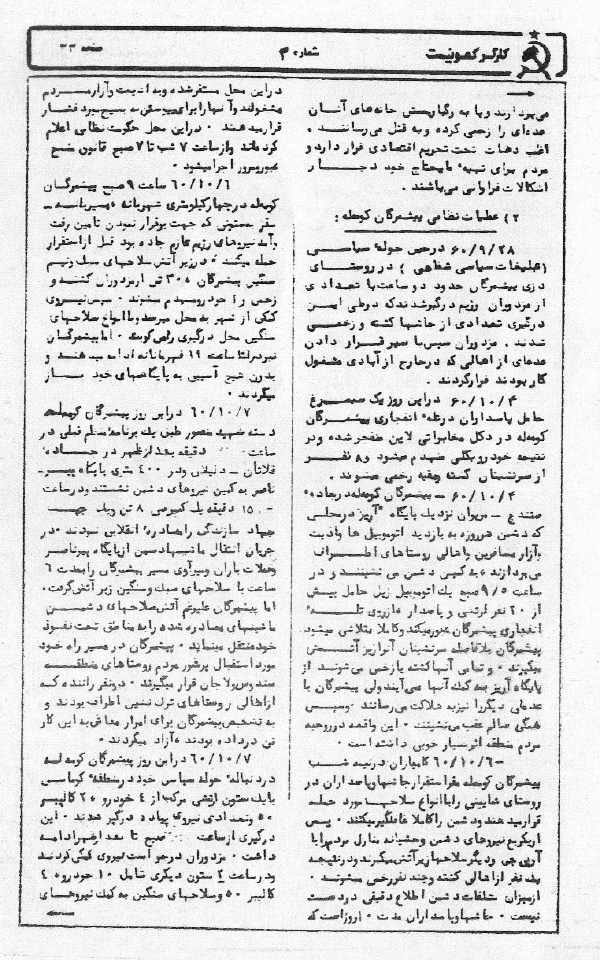 کارگر کمونیست
شماره ۳
صفحه ۲۳
می‌پردازند و یا به رگبار بستن خانه‌های آنان
عده‌ای را زخمی کرده و به قتل می‌رسانند .
اغلب دهات تحت تحریم اقتصادی قرار دارد و
مردم برای تهیه مایحتاج خود دچار
اشکالات فراوانی می‌باشند .
۲) عملیات نظامی پیشمرگان کومله :
۶۰/۹/۲۸ در حین جوله سیاسی
(تبلیغات سیاسی شفاهی) در روستای
دزی پیشمرگان حدود دو ساعت با تعدادی
از مزدوران رژیم درگیر شدند که طی این
درگیری تعدادی از جاشها کشته و زخمی
شدند . مزدوران سپس با سپر قرار دادن
عده‌ای از اهالی که در خارج از آبادی مشغول
کار بودند فرار کردند .
۶۰/۱۰/۴ در این روز یک
حامل پاسداران در تله انفجاری پیشمرگان
کومله در دکل مخابراتی لاین منفجر شده و در
نتیجه خودرو بکلی منهدم میشود و ۸ نفر
از سرنشینان کشته و بقیه زخمی میشوند .
۶۰/۱۰/۴ - پیشمرگان کومله در جاده
سنندج - مریوان نزدیک پایگاه "آریز" در محلی
که دشمن هر روزه به بازدید اتومبیل ها و اذیت
و آزار مسافرین و اهالی روستاهای اطراف
می‌پردازند به کمین دشمن می نشینند و در
ساعت ۹/۵ صبح یک اتومبیل زیل حامل بیش
از ۲۰ نفر ارتشی و پاسدار از روی تله
انفجاری پیشمرگان عبور میکند و کاملا متلاشی میشود
پیشمرگان بلافاصله سرنشینان آنرا زیر آتش
میگیرند و تمامی آنها کشته یا زخمی می‌شوند . از
پایگاه آریز به کمک آنها می‌آیند ولی پیشمرگان با
عده‌ای دیگر را نیز به هلاکت می‌رسانند و سپس
همگی سالم عقب می‌نشینند . این واقعه در روحیه
مردم منطقه اثر بسیار خوبی داشته است .
۶۰/۱۰/۶ - کامیاران در نیمه شب
پیشمرگان کومله مقر استقرار جاشها و پاسداران در
روستای شاهینی را با انواع سلاحها مورد حمله
قرار میدهند و دشمن را کاملا غافلگیر میکنند . پس
از یکربع نیروهای دشمن وحشیانه منازل مردم را با
آر‌پی‌جی و دیگر سلاحها زیر آتش میگیرند و در نتیجه
یک نفر از اهالی کشته و چند نفر زخمی میشوند .
از میزان تلفات دشمن اطلاع دقیقی در دست
نیست . جاشها و پاسداران مدت ۱۰ روز است که
در این محل مستقر شده و به اذیت و آزار مردم
مشغولند و آنها را برای بسیج مورد فشار
قرار میدهند . در این محل حکومت نظامی اعلام
کرده‌اند و از ساعت ۷ شب تا ۷ صبح قانون منع
عبور و مرور اجرا میشود .
۶۰/۱۰/۶ ساعت ۹ صبح پیشمرگان
کومله در چهار کیلومتری شهر بانه
سقز ستونی که جهت برقرار نمودن تامین رفت
و آمد نیروهای رژیم عازم جاده بود قبل از استقرار
حمله میکند . در زیر آتش سلاحهای سبک و نیمه
سنگین پیشمرگان ۳۰ تن از مزدوران کشته و
زخمی را از خود میشوند . سپس نیروی
کمکی از شهر به محل میرسد و با انواع سلاحهای
سنگین محل درگیری را میکوبند . اما پیشمرگان
نبرد را تا ساعت ۱۹ قهرمانانه ادامه میدهند و
بدون هیچ آسیبی به پایگاههای خود باز
میگردند .
۶۰/۱۰/۷ در این روز پیشمرگان کومله
دسته شهید منصور طبق یک برنامه منظم قبلی در
ساعت دقیقه بعد از ظهر در جاده
قلاتان - دلیلان و در ۴۰۰ متری پایگاه پیر
ناصر به کمین نیروهای دشمن نشستند و در ساعت
۱۵۰۰ دقیقه یک کمپرسی ۸ تن و یک جیپ
جهاد سازندگی را مصادره انقلابی نمودند . در
جریان انتقال ماشینها دشمن از پایگاه پیر ناصر
و مسیر پیشمرگان را بمدت ۶
ساعت با سلاحهای سبک و سنگین زیر آتش گرفت .
اما پیشمرگان علیرغم آتش سلاحهای دشمن
ماشینهای مصادره شده را به مناطق تحت نفوذ
خود منتقل مینمایند . پیشمرگان در مسیر راه خود
مورد استقبال پرشور مردم روستاهای منطقه
سندوس و لاجان قرار میگیرند . دو نفر راننده که
از اهالی روستاهای ترک نشین اطراف بودند و
به تشخیص پیشمرگان برای امرار معاش به این کار
تن در داده بودند ، آزاد میگردند .
۶۰/۱۰/۷ در این روز پیشمرگان کومله
در دنباله جوله سیاسی خود در منطقه گوماسی
با یک ستون ارتشی مرکب از ۴ خودرو ۲۰ کالیبر
۵۰ و تعدادی نیروی پیاده درگیر شدند . این
درگیری از ساعت صبح تا بعد از ظهر ادامه
داشت . مزدوران درخواست نیروی کمکی کردند
و در ساعت ۲ ستون دیگری شامل ۱۰ خودرو ۴
کالیبر ۵۰ و سلاحهای سنگین به کمک نیروهای